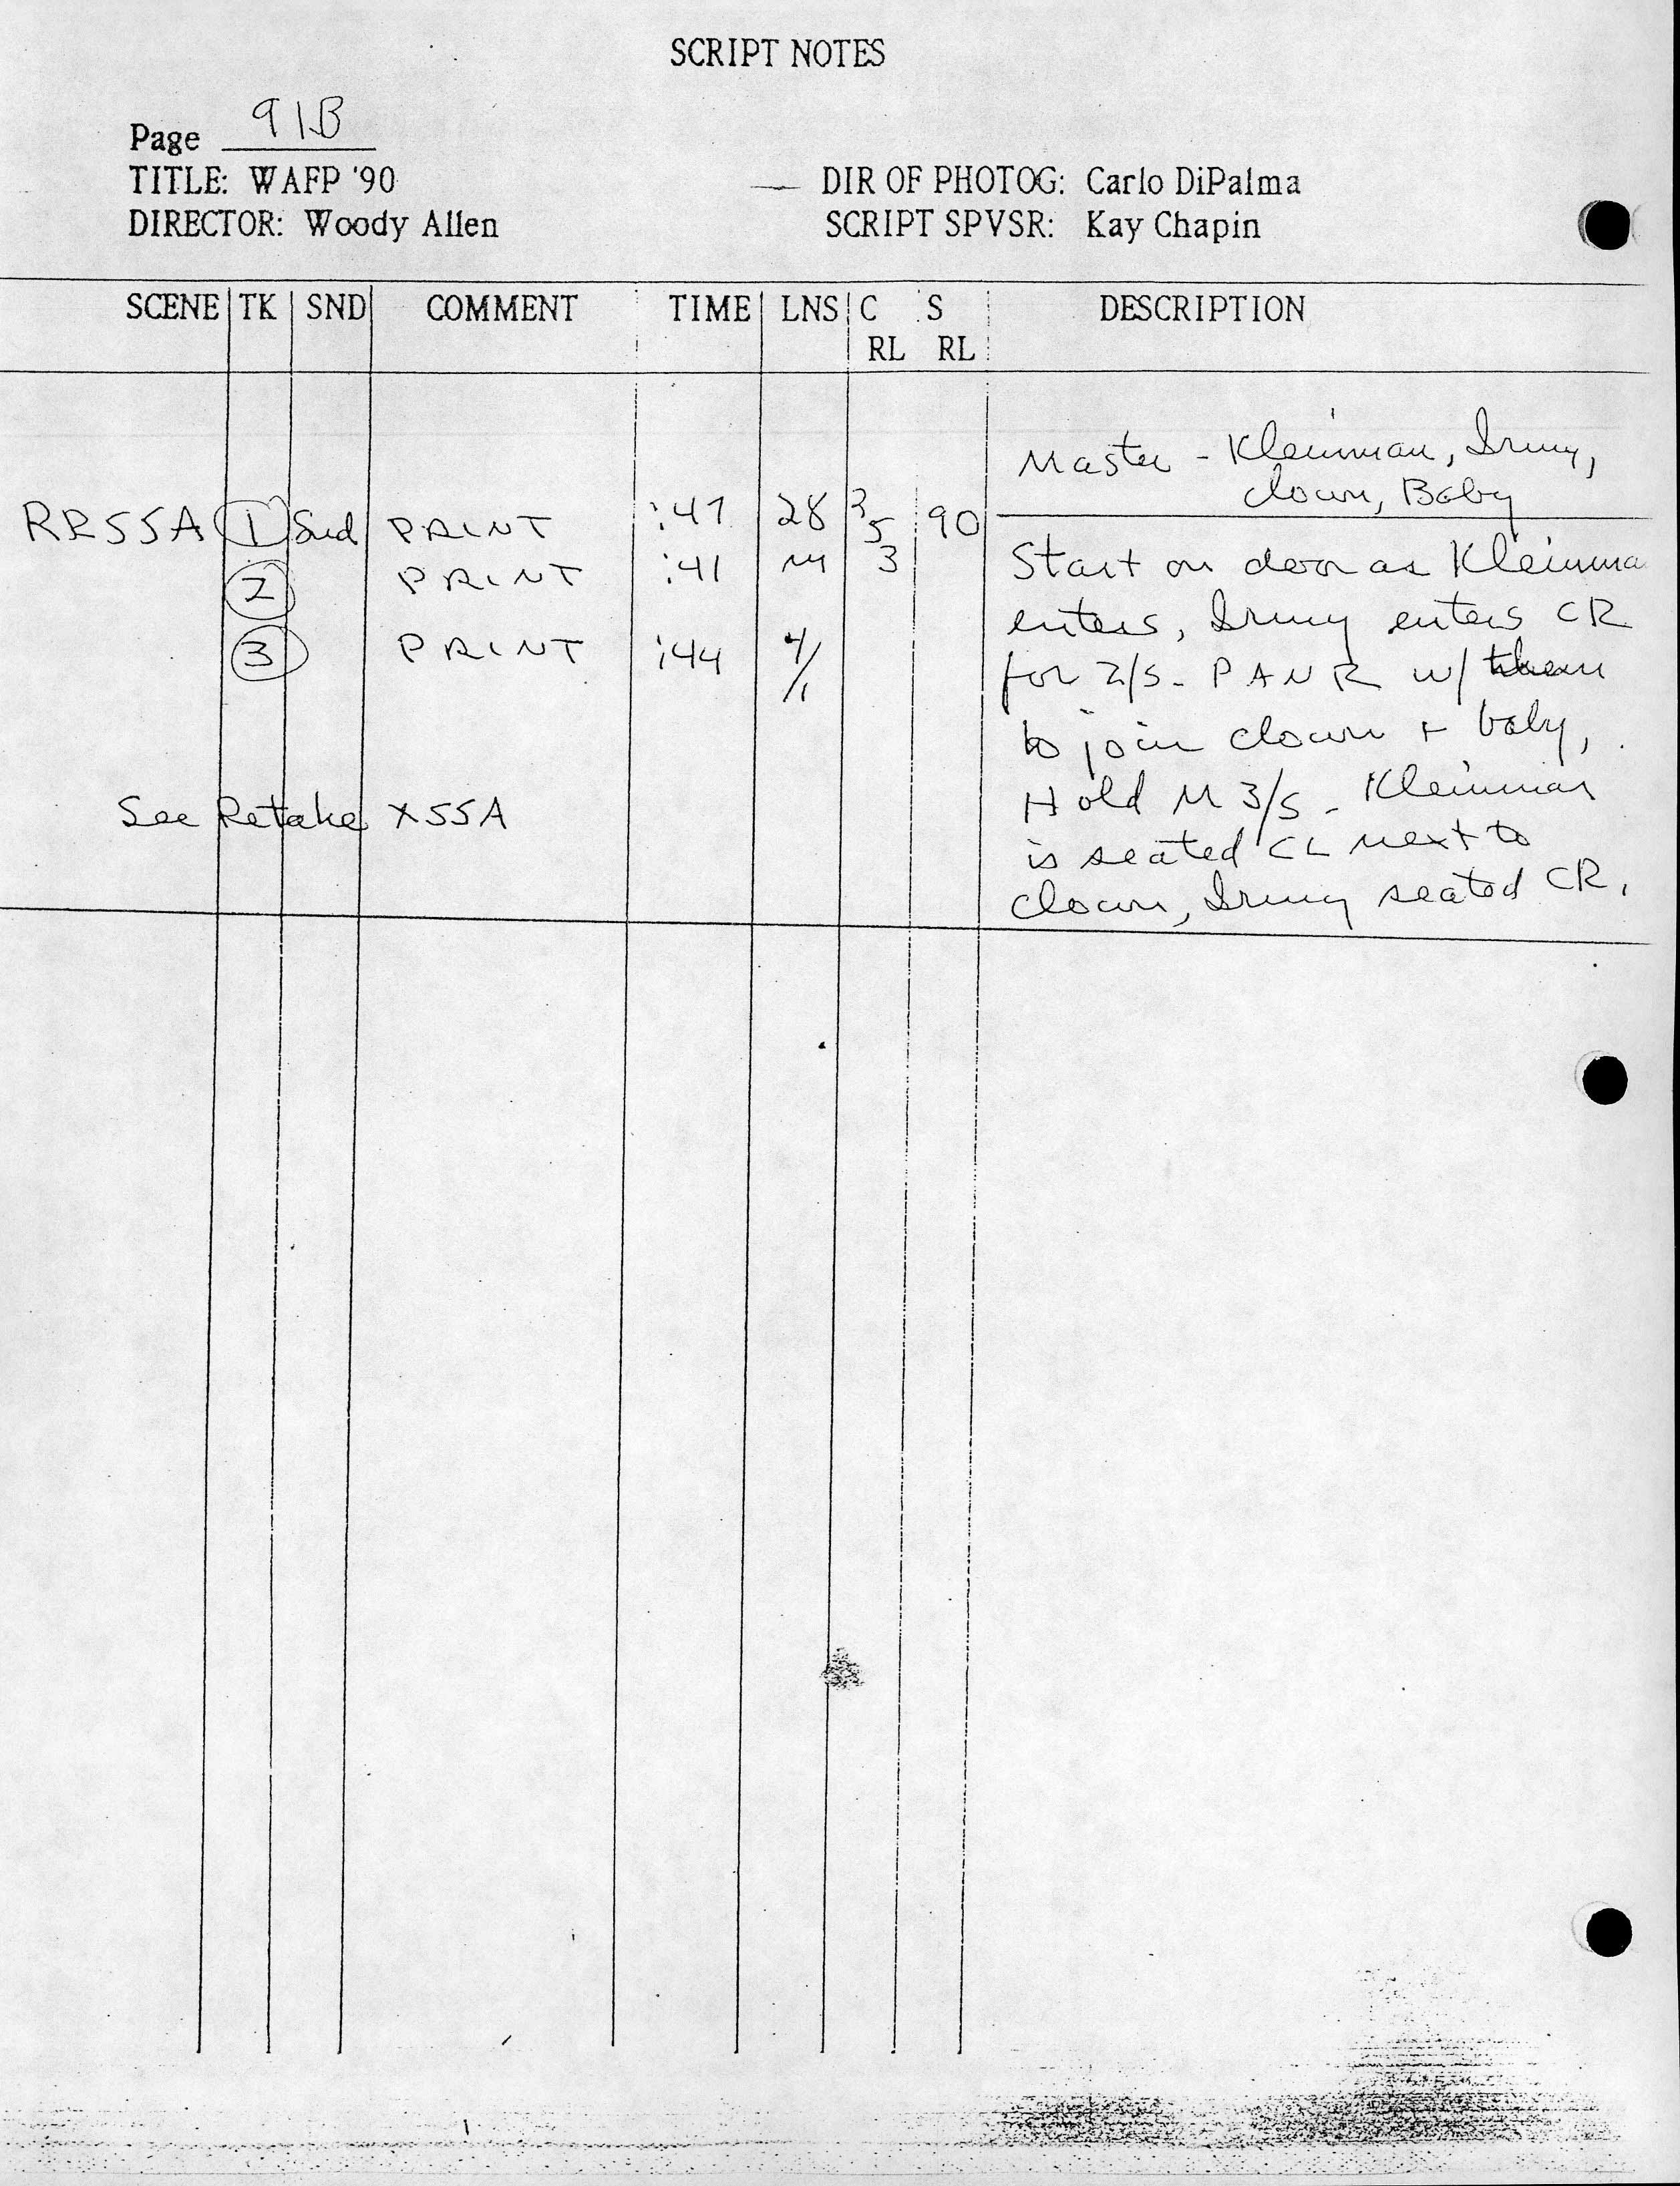 SCRIPT NOTES
Page 91B
TITLE: WAFP '90
DIRECTOR: Woody Allen
DIR OF PHOTOG: Carlo DiPalma
SCRIPT SPVSR: Kay Chapin
SCENE TK SND COMMENT TIME LNS C RL S RL DESCRIPTION
Master - Kleinman, Irmy,
Clown, Baby
RR55A 1 Snd PRINT :47 28 90
2 PRINT :41
3 PRINT :44
Start on door as Kleinma
enters, Irmy enters CR
for 2/S - PAN R w/ them
to join clown + baby,
Hold M 3/S - Kleinman
is seated CL next to
clown, Irmy seated CR.
See Retake X55A